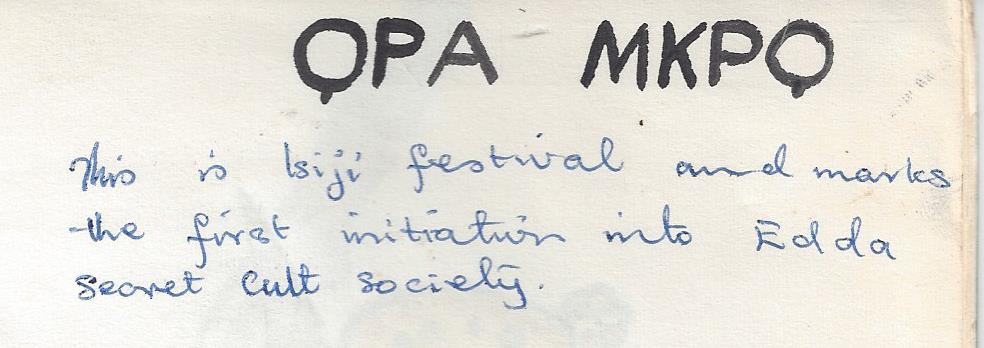 ỌPA MKPỌ
This is Isiji festival and marks
the first initiation into Edda
secret cult society.